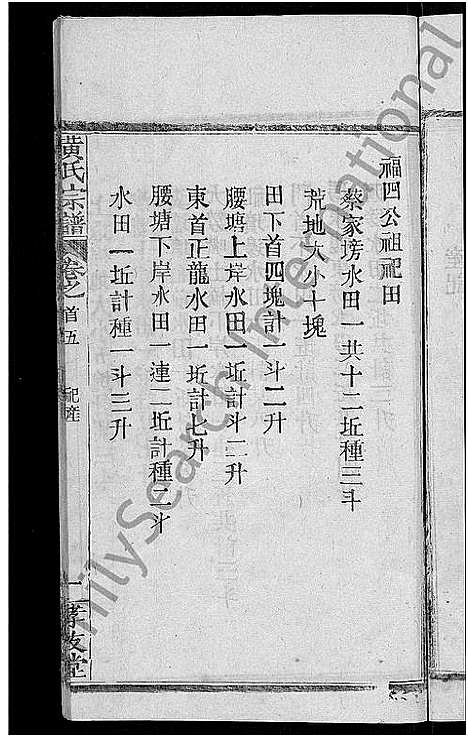 福四公祖祀田
蔡家塝水田一共十二坵種三斗
荒地大小十塊
田下首四塊計一斗二升
腰塘上岸水田一坵計斗二升
東首正龍水田一坵計七升
腰塘下岸水田一連二坵計種二斗
水田一坵計種一斗三升
黄氏宗譜
卷之首五
祀産
一
孝友堂
FamilySearch International